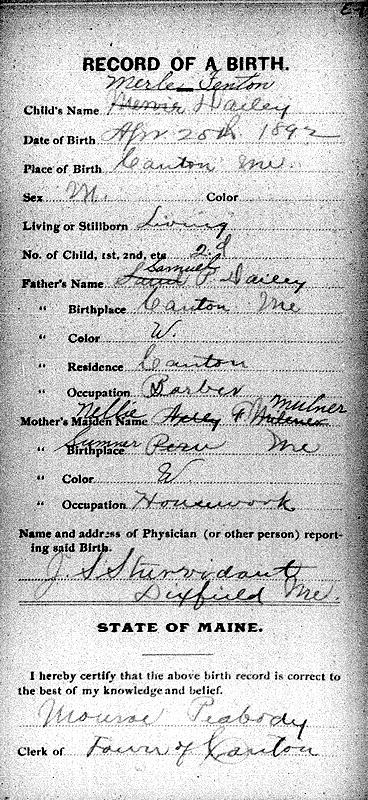 RECORD OF A BIRTH.
Merle Fenton
Child's Name Dailey
Date of Birth Apr 25th 1892
Place of Birth Canton Me.
Sex M. Color
Living or Stillborn Living
No. of Child, 1st, 2nd, etc 2d
Samuel
Father's Name P Dailey
" Birthplace Canton Me
" Color W.
" Residence Canton
" Occupation Barber
Nellie Milner
Mother's Maiden Name F
Sumner
" Birthplace Peru Me
" Color W.
" Occupation Housework
Name and address of Physician (or other person) report-
ing said Birth.
J. S. Sturtivant
Dixfield Me.
STATE OF MAINE.
I hereby certify that the above birth record is correct to
the best of my knowledge and belief.
Monroe Peabody
Clerk of Town of Canton